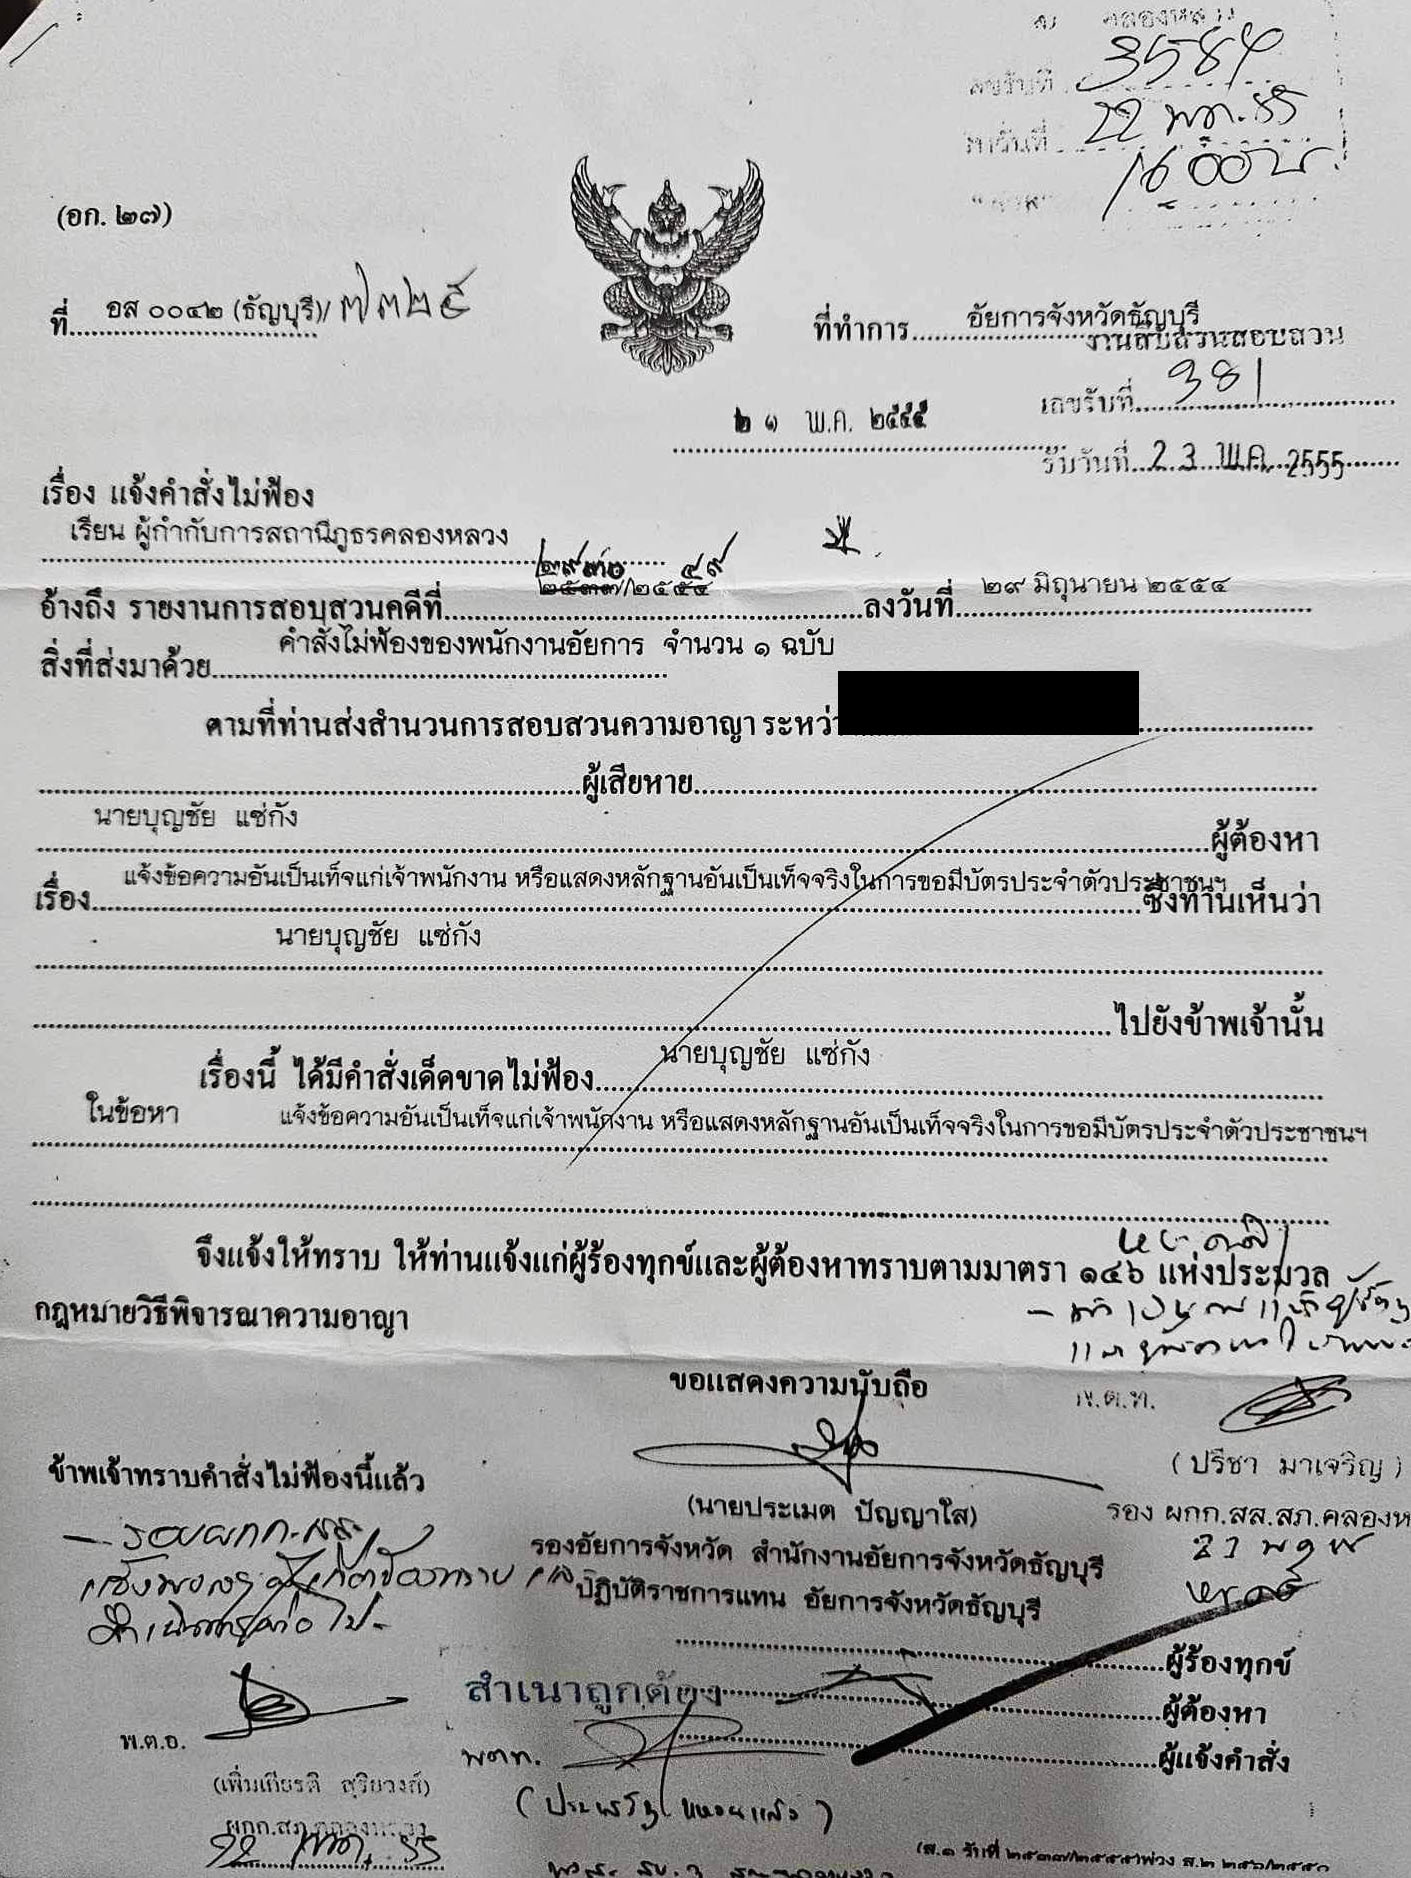 คลองหลวง
เลขรับที่ 3584
วันที่ 22 พ.ค. 55
(อก. ๒๗)
ที่ อส ๐๐๔๒ (ธัญบุรี)/๗๓๒๕
ที่ทำการ อัยการจังหวัดธัญบุรี
งานสืบสวนสอบสวน
เลขรับที่ 381
๒๑ พ.ค. ๒๕๕๕
รับวันที่ 23 พ.ค. 2555
เรื่อง แจ้งคำสั่งไม่ฟ้อง
เรียน ผู้กำกับการสถานีภูธรคลองหลวง
อ้างถึง รายงานการสอบสวนคดีที่ ๒๕๓๗/๒๕๕๔ ลงวันที่ ๒๙ มิถุนายน ๒๕๕๔
สิ่งที่ส่งมาด้วย คำสั่งไม่ฟ้องของพนักงานอัยการ จำนวน ๑ ฉบับ
ตามที่ท่านส่งสำนวนการสอบสวนความอาญา ระหว่า
ผู้เสียหาย
นายบุญชัย แซ่กัง ผู้ต้องหา
เรื่อง แจ้งข้อความอันเป็นเท็จแก่เจ้าพนักงาน หรือแสดงหลักฐานอันเป็นเท็จจริงในการขอมีบัตรประจำตัวประชาชนฯ ซึ่งท่านเห็นว่า
นายบุญชัย แซ่กัง
ไปยังข้าพเจ้านั้น
เรื่องนี้ ได้มีคำสั่งเด็ดขาดไม่ฟ้อง นายบุญชัย แซ่กัง
ในข้อหา แจ้งข้อความอันเป็นเท็จแก่เจ้าพนักงาน หรือแสดงหลักฐานอันเป็นเท็จจริงในการขอมีบัตรประจำตัวประชาชนฯ
จึงแจ้งให้ทราบ ให้ท่านแจ้งแก่ผู้ร้องทุกข์และผู้ต้องหาทราบตามมาตรา ๑๔๖ แห่งประมวล
กฎหมายวิธีพิจารณาความอาญา
ขอแสดงความนับถือ
พ.ต.ท.
(ปรีชา มาเจริญ)
รอง ผกก.สส.สภ.คลองห
ข้าพเจ้าทราบคำสั่งไม่ฟ้องนี้แล้ว
(นายประเมต ปัญญาใส)
รองอัยการจังหวัด สำนักงานอัยการจังหวัดธัญบุรี
ปฏิบัติราชการแทน อัยการจังหวัดธัญบุรี
ผู้ร้องทุกข์
สำเนาถูกต้อง
ผู้ต้องหา
พ.ต.อ.
พ.ต.ท.
ผู้แจ้งคำสั่ง
(เพิ่มเกียรติ สุริยวงศ์)
ผกก.สภ.คลองหลวง
22 พ.ค. 55
(ส.๑ รับที่ ๒๕๓๗/๒๕๕๔)พ่วง ส.๒ ๒๕๖/๒๕๕๐